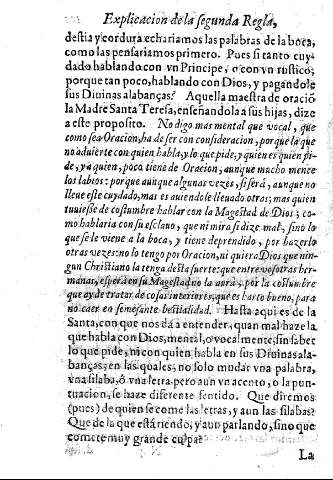 Explicacion de la segunda Regla,
destia y cordura echariamos las palabras de la boca,
como las pensariamos primero. Pues si tanto cuy-
dado hablando con vn Principe, o con vn rustico;
porque tan poco, hablando con Dios, y pagandole
sus Diuinas alabanças? Aquella maestra de oraciō
la Madre Santa Teresa, enseñandola a sus hijas, dize
a este proposito. No digo mas mental que vocal, que
como sea Oracion, ha de ser con consideracion, porque la que
no aduierte con quien habla, y lo que pide, y quien es quien pi-
de, y a quien, poco tiene de Oracion, aunque mucho menee
los labios: porque aunque algunas vezes, si serà, aunque no
lleue este cuydado, mas es auiendole lleuado otras; mas quien
tuuiesse de costumbre hablar con la Magestad de Dios; co-
mo hablaria con su esclauo, que ni mira si dize mal, sino lo
que se le viene a la boca, y tiene deprendido, por hazerlo
otras vezes: no lo tengo por Oracion, ni quiera Dios que nin-
gun Christiano la tenga desta suerte: que entre vosotras her-
manas, espero en su Magestad no la aurà, por la costumbre
que ay de tratar de cosas interiores, que es harto bueno, para
no caer en semejante bestialidad. Hasta aqui es de la
Santa, con que nos da a entender, quan mal haze la
que habla con Dios, mental, o vocalmente, sin saber
lo que pide, ni con quien habla en sus Diuinas ala-
banças; en las quales, no solo mudar vna palabra,
vna silaba, ò vna letra, pero aun vn acento, o la pun-
tuacion, se haze diferente sentido. Que diremos
(pues) de quien se come las letras, y aun las silabas?
Que de la que està riendo, y aun parlando, sino que
comete muy grande culpa?
La